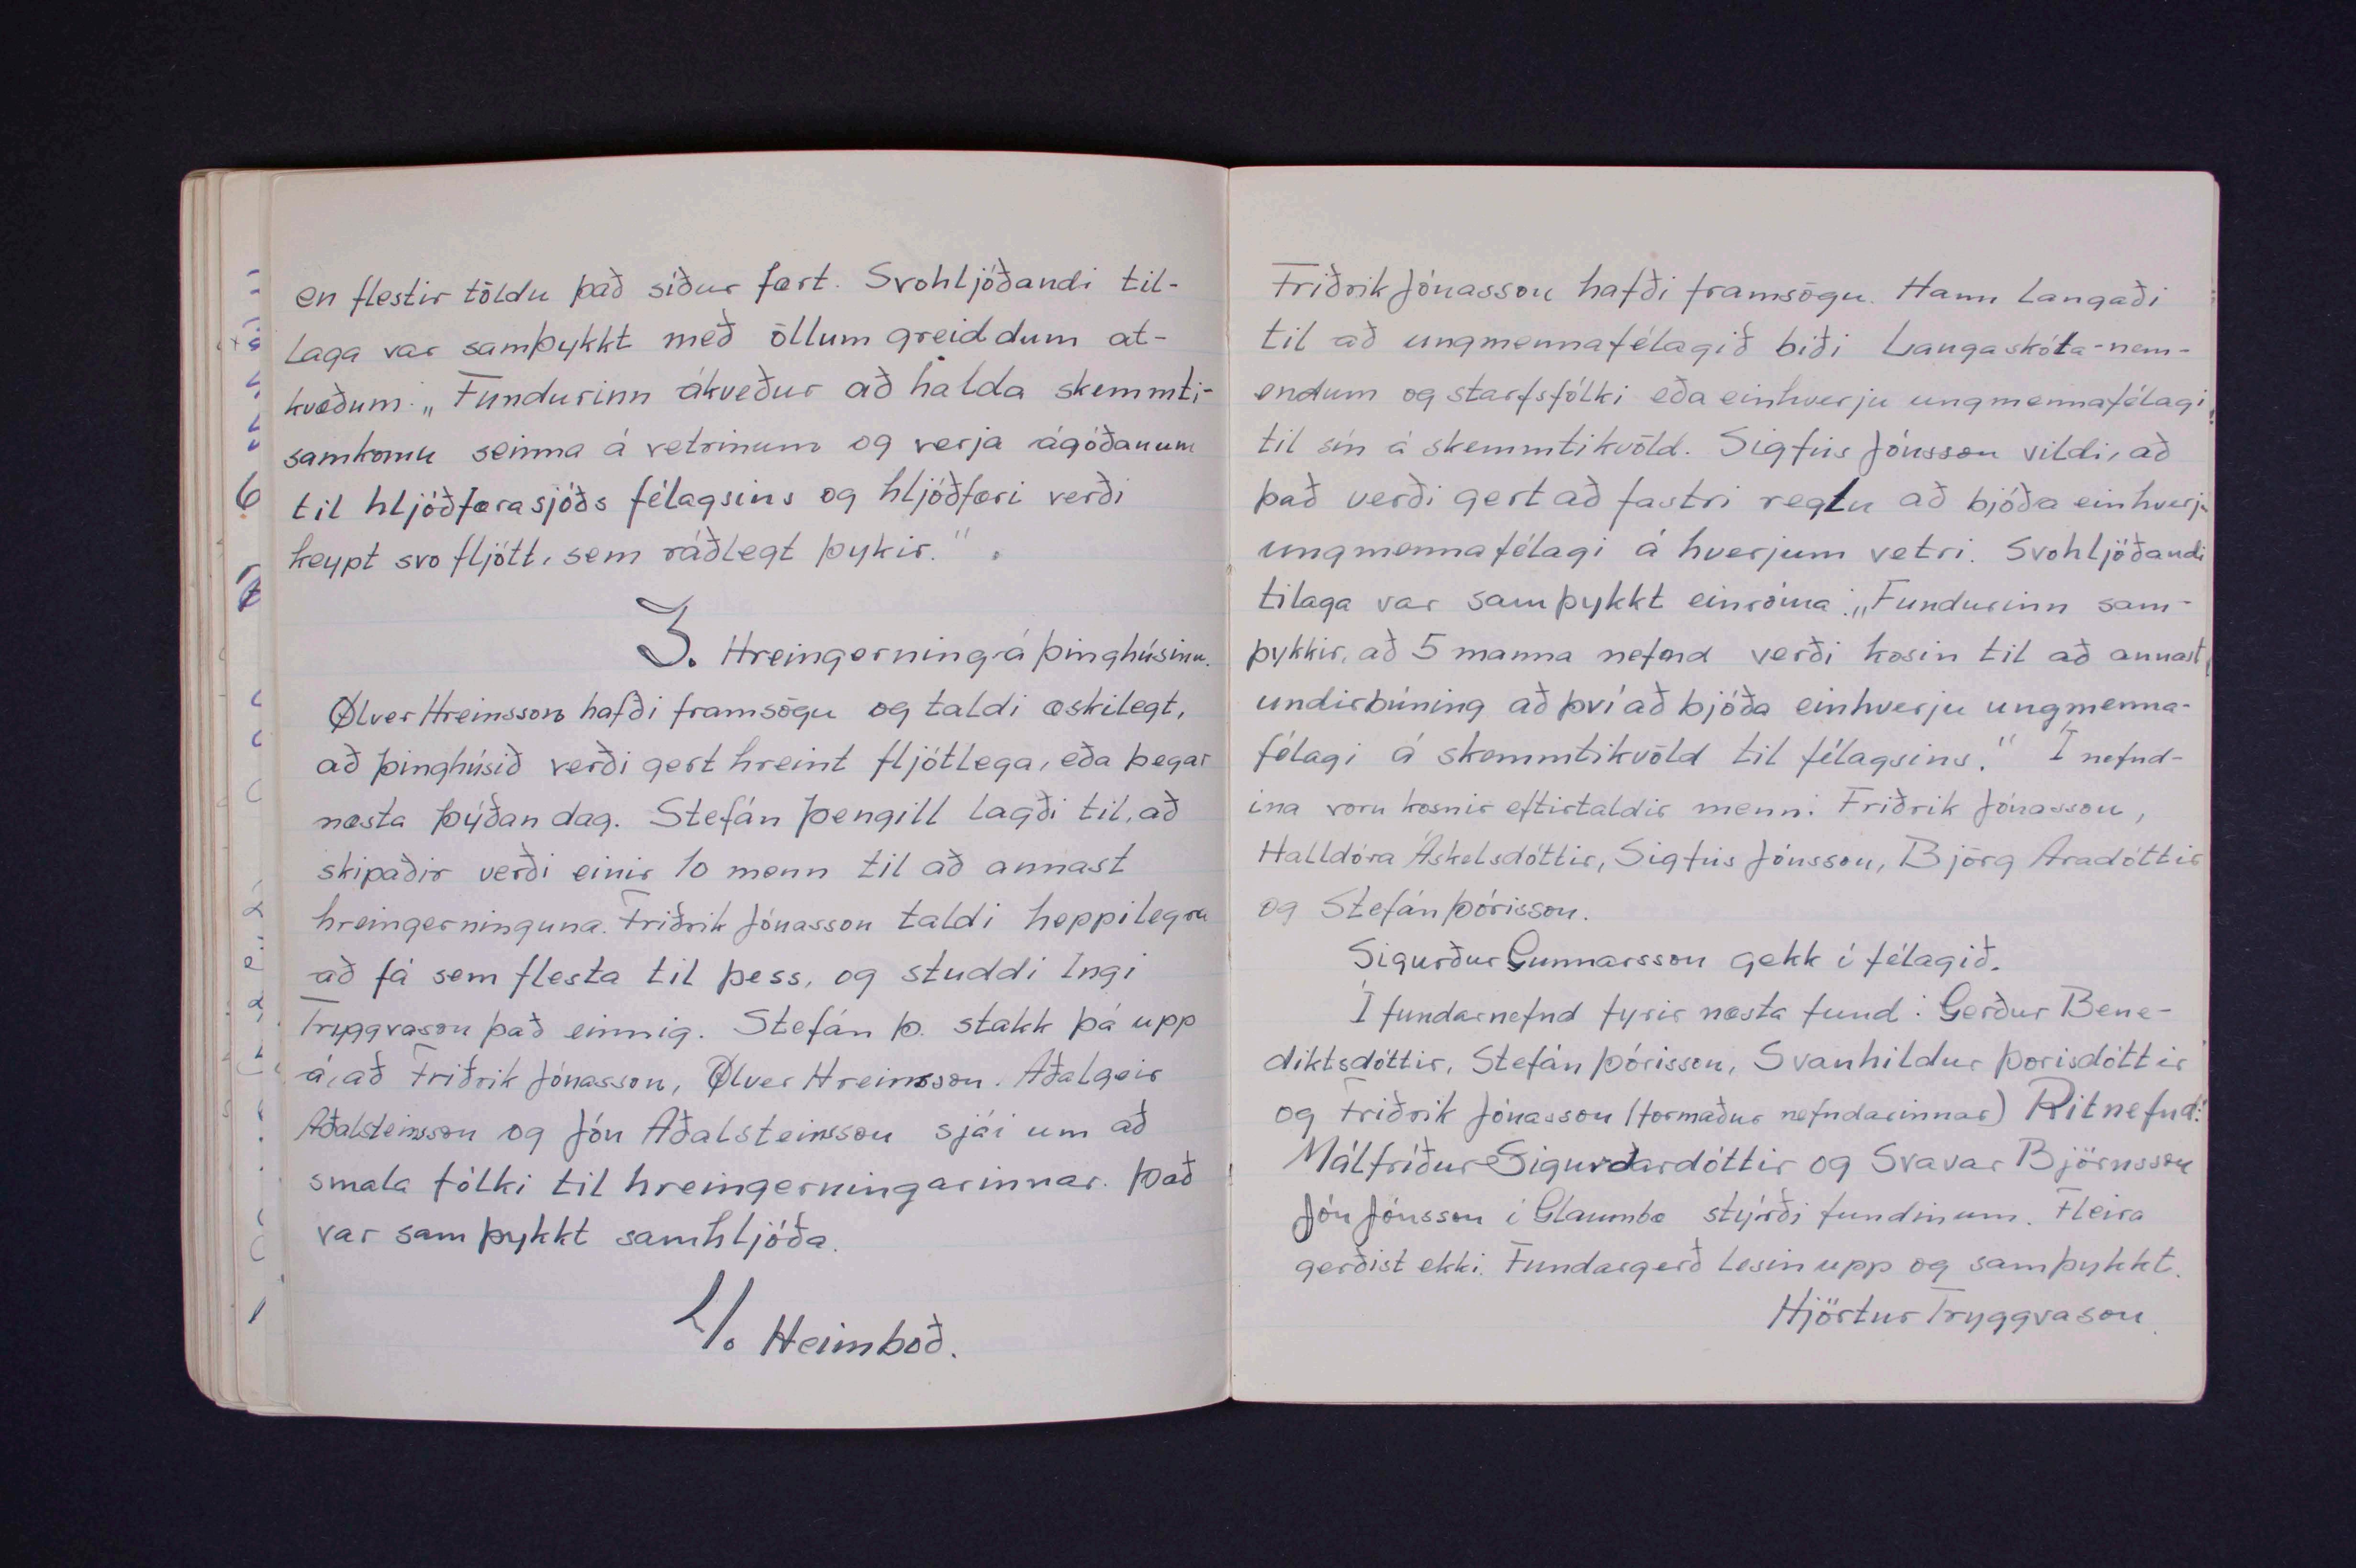 en flestir töldu það síður fært. Svohljóðandi til-
laga var samþykkt með öllum greiddum at-
kvæðum: „Fundurinn ákveður að halda skemmti-
samkomu seinna á vetrinum og verja ágóðanum
til hljóðfærasjóðs félagsins og hljóðfæri verði
keypt svo fljótt, sem ráðlegt þykir."
3. Hreingerning á þinghúsinu.
Ølver Hreinsson hafði framsögu og taldi æskilegt,
að þinghúsið verði gert hreint fljótlega, eða þegar
næsta þýðan dag. Stefán Þengill lagði til, að
skipaðir verði einir 10 menn til að annast
hreingerninguna. Friðrik Jónasson taldi heppilegra
að fá sem flesta til þess, og studdi Ingi
Tryggvason það einnig. Stefán Þ. stakk þá upp
á, að Friðrik Jónasson, Ølver Hreinsson, Aðalgeir
Aðalsteinsson og Jón Aðalsteinsson sjái um að
smala fólki til hreingerningarinnar. Það
var samþykkt samhljóða.
4. Heimboð.
Friðrik Jónasson hafði framsögu. Hann langaði
til að ungmennafélagið biði Laugaskóla-nem-
endum og starfsfólki eða einhverju ungmennafélagi
til sín á skemmtikvöld. Sigfús Jónsson vildi, að
það verði gert að fastri reglu að bjóða einhverju
ungmennafélagi á hverjum vetri. Svohljóðandi
tilaga var samþykkt einróma: „Fundurinn sam-
þykkir, að 5 manna nefnd verði kosin til að annast
undirbúning að því að bjóða einhverju ungmenna-
félagi á skemmtikvöld til félagsins." Í nefnd-
ina voru kosnir eftirtaldir menn: Friðrik Jónasson,
Halldóra Áskelsdóttir, Sigfús Jónsson, Björg Aradóttir
og Stefán Þórisson.
Sigurður Gunnarsson gekk í félagið.
Í fundarnefnd fyrir næsta fund: Gerður Bene-
diktsdóttir, Stefán Þórisson, Svanhildur Þorisdóttir
og Friðrik Jónasson (formaður nefndarinnar) Ritnefnd:
Málfríður Sigurðardóttir og Svavar Björnsson
Jón Jónsson í Glaumbæ stýrði fundinum. Fleira
gerðist ekki. Fundargerð lesin upp og samþykkt.
Hjörtur Tryggvason.